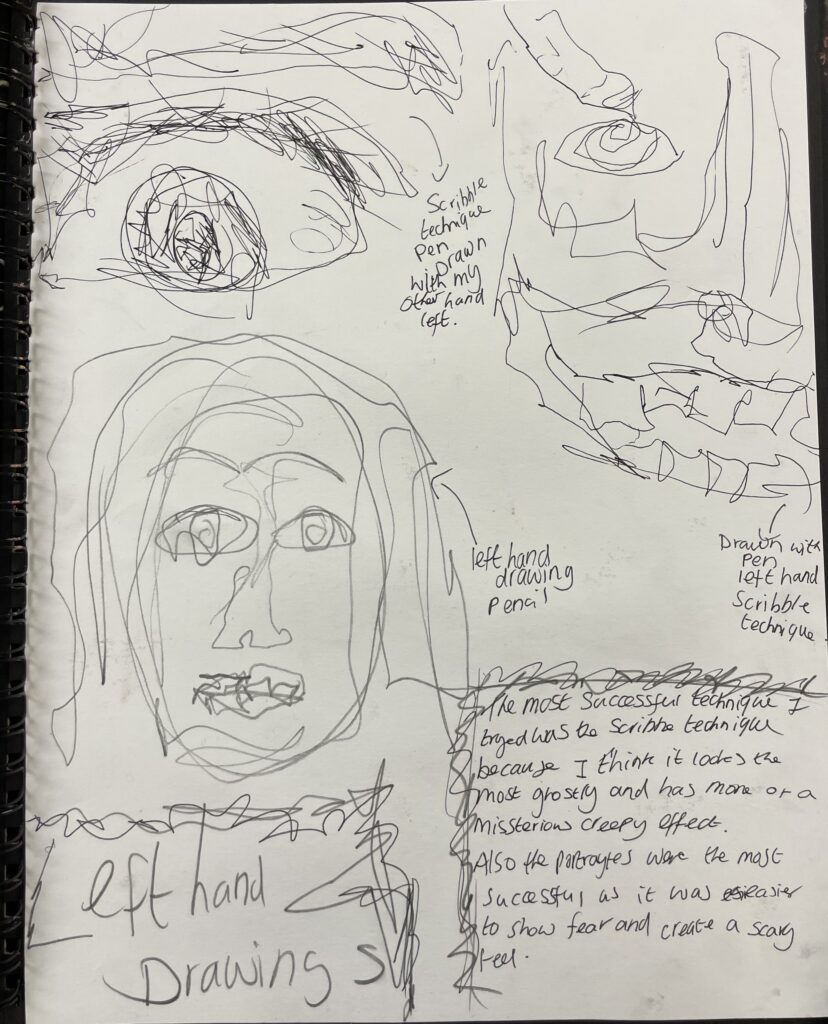 Scribble
technique
Pen
Drawn
with my
other hand
left.
left hand
drawing
pencil
Drawn with
Pen
left hand
Scribble
technique.
The most successful technique I
tryed was the scribble technique
because I think it looks the
most grostly and has more of a
missterious creepy effect.
Also the portraytes were the most
successful as it was easier
to show fear and create a scary
feel.
Left hand
Drawings